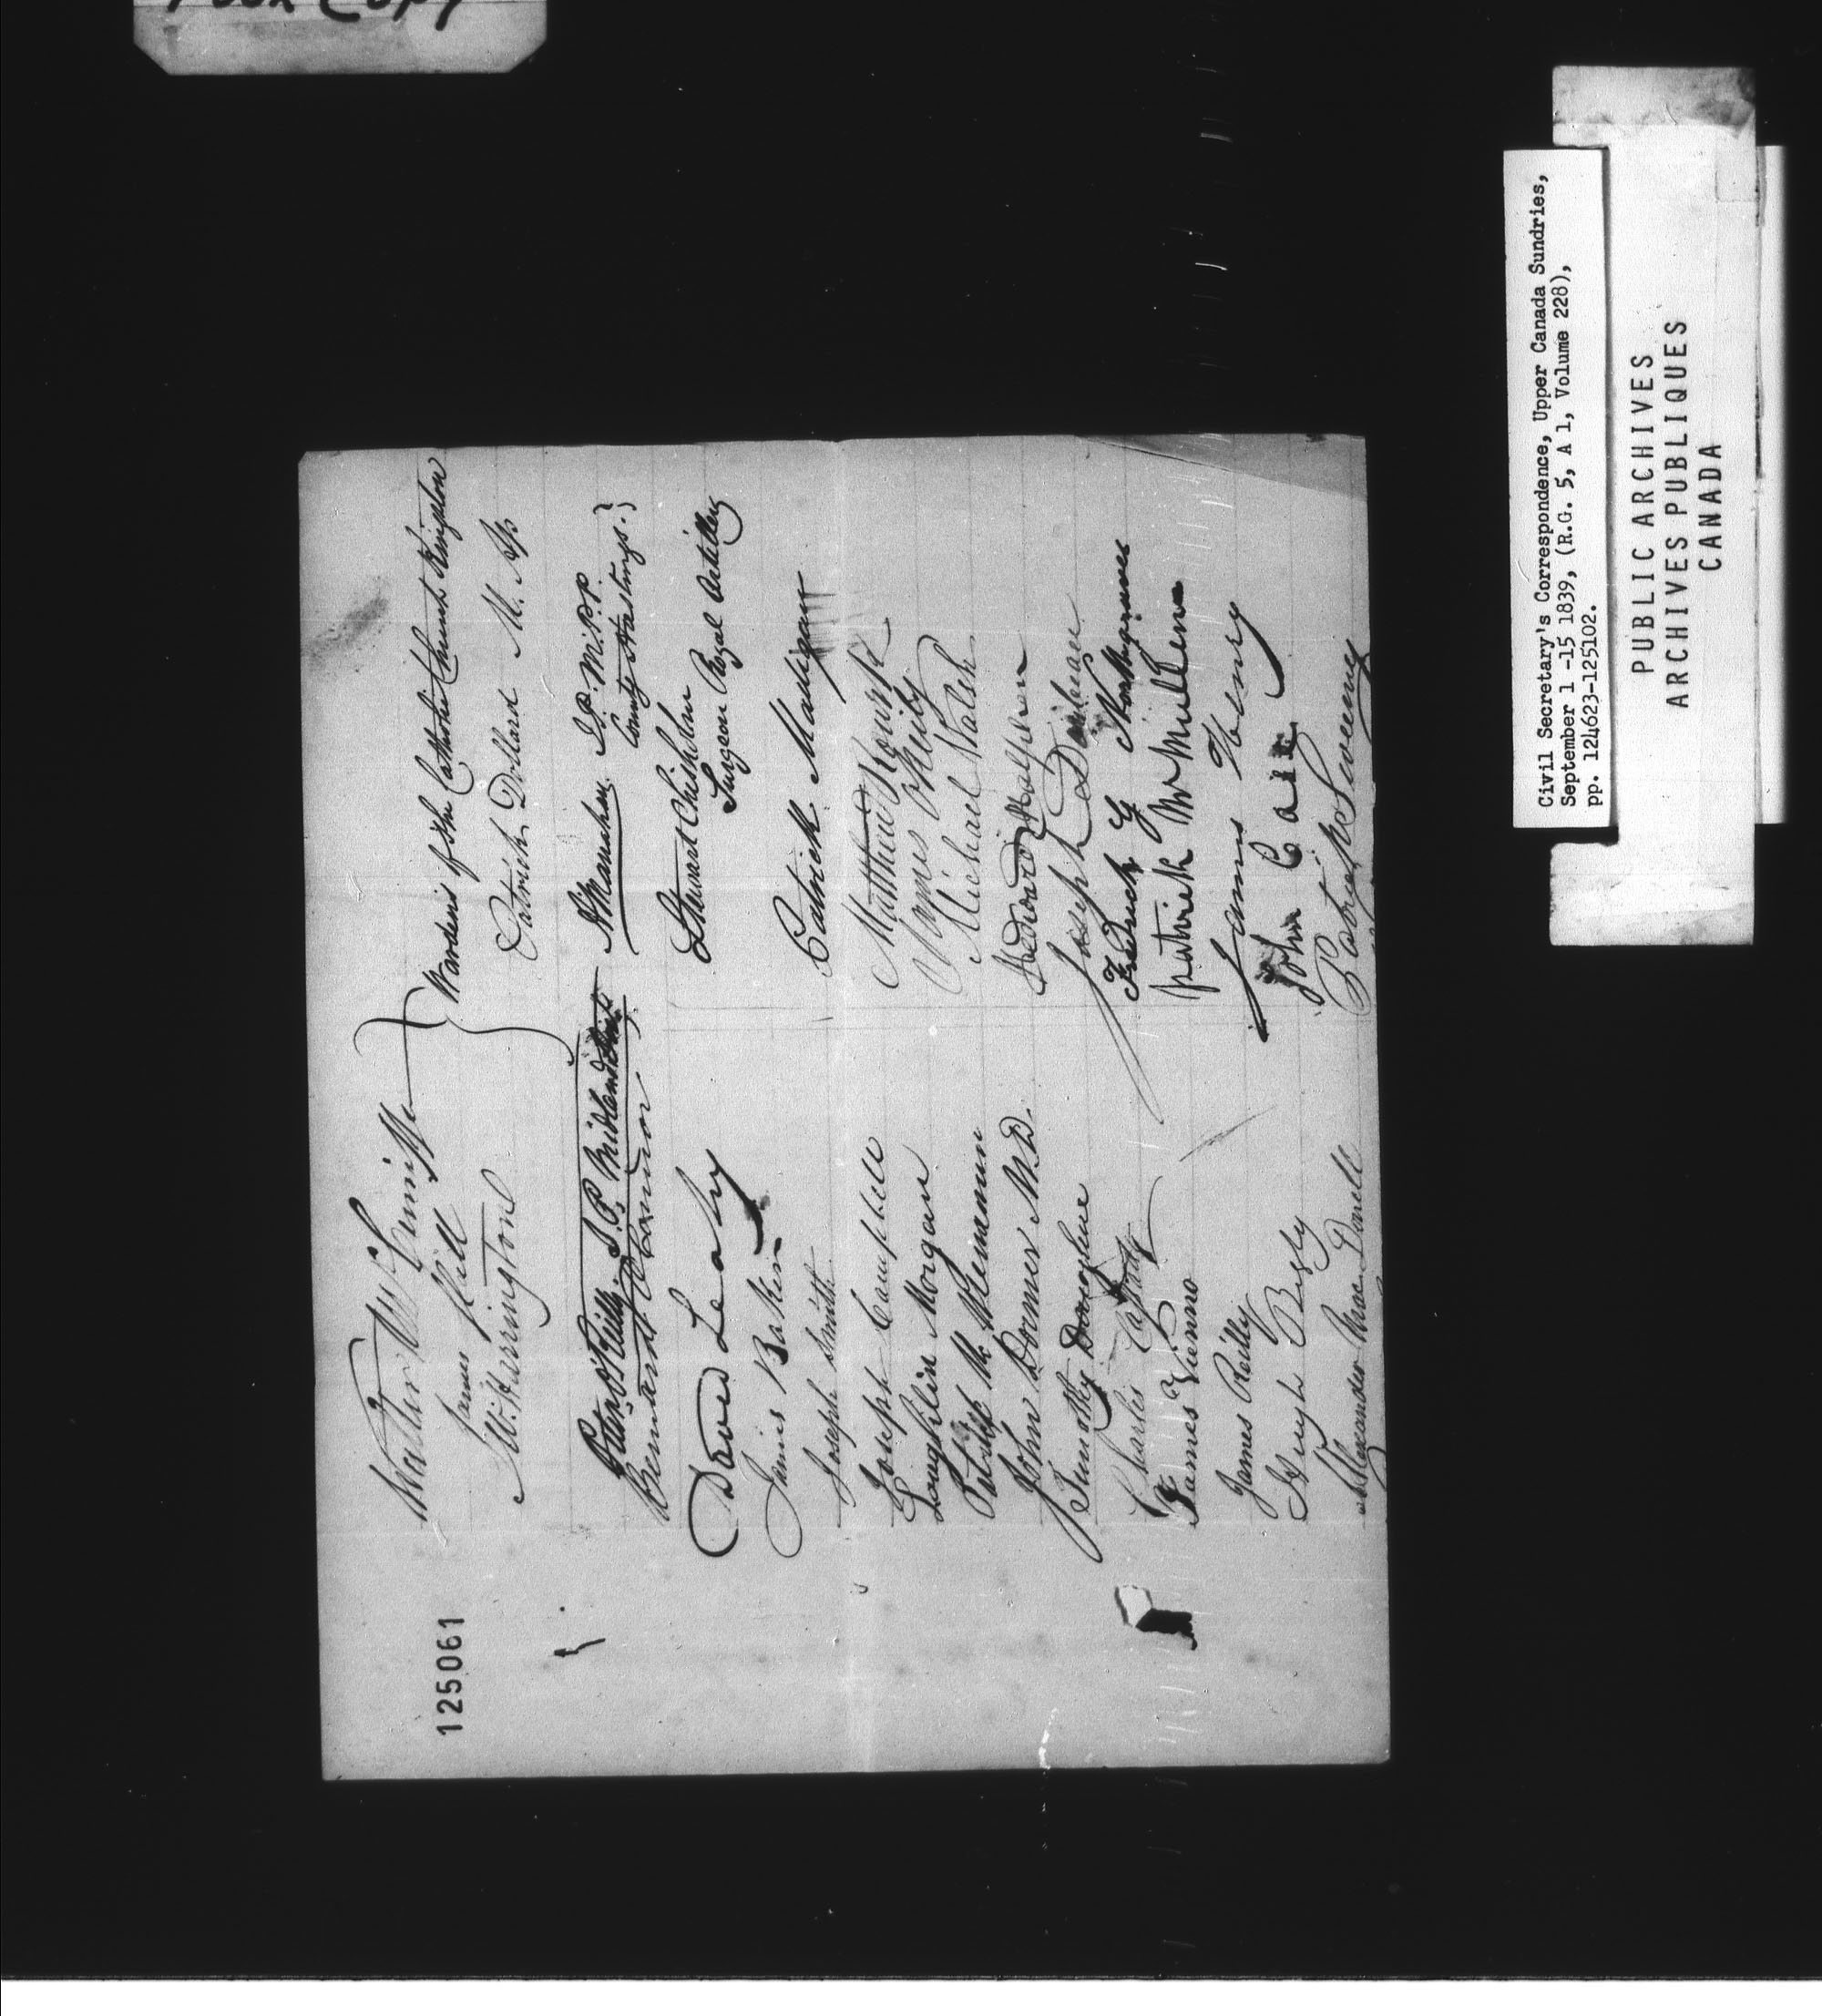 125061
Walter McCuniffe
James Hill
M. Harrington
Wardens of the Catholic Church Kingston
Patrick Dollard M. Ap
Peter O'Reilly J.P. Midland District
Bernard Connor
David Leahy
James Baker
Joseph Smith
Joseph Campbell
Loughlin Morgan
John Dormer M.D.
Timothy Donoghue
Charles
James
James Reilly
Hugh
Alexander MacDonell
A Manahan J.P. M.P.P.
County Hastings.
Stewart Chisholm
Surgeon Royal Artillery
Patrick Madigan
Matthew Rourk
James
Michael Walsh
Edward Halpen
Joseph
Fredrick Y
patrick McMullen
James Henry
John Case
Patrick McSweeney
POOR COPY
Civil Secretary's Correspondence, Upper Canada Sundries,
September 1 -15 1839, (R.G. 5, A 1, Volume 228),
pp. 124623-125102.
PUBLIC ARCHIVES
ARCHIVES PUBLIQUES
CANADA